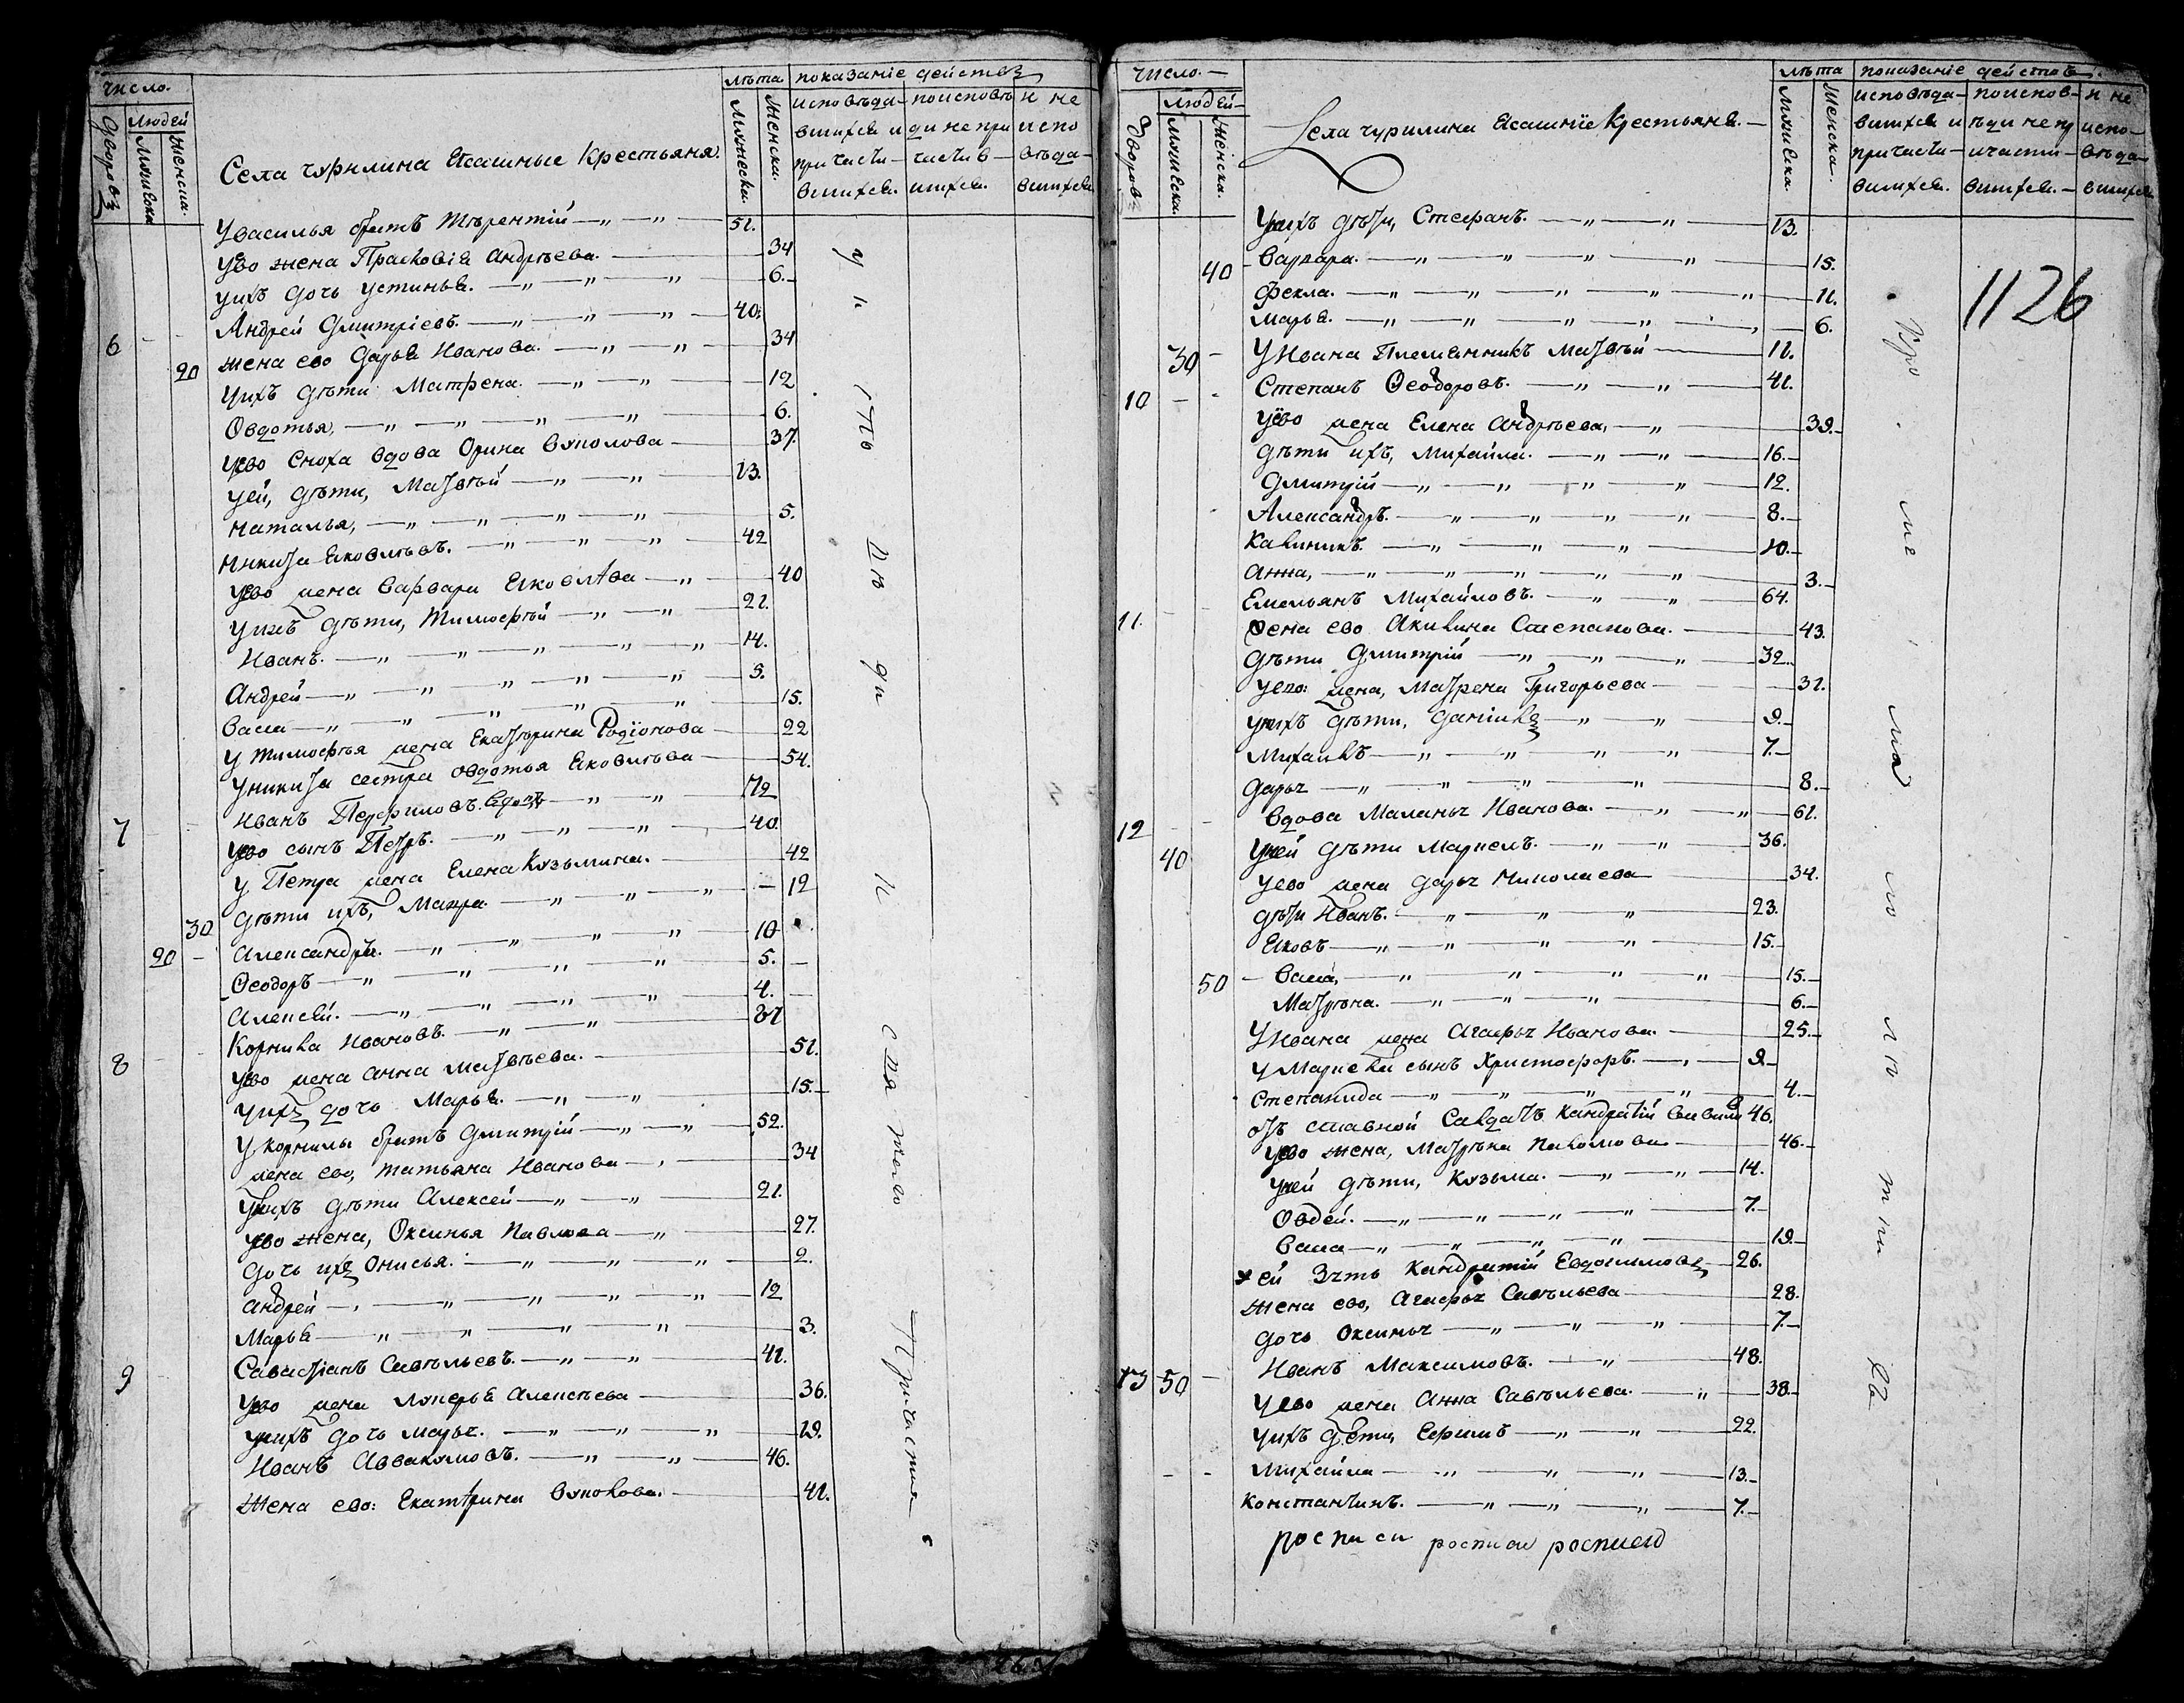 число.
дворовъ
людей
мужеска
женска.
Села чурилина Ясашные крестьяня.
лѣта
мужеска.
женска.
показание действъ
исповѣда-
вшихся и
причасти-
вшихся.
поисповѣ
ди не при
частив-
шихся.
и не
испо
вѣда-
вшихся
Увасилья братъ Терентiй 51.
Уево жена Прасковiя Андрѣева. 34
Уихъ дочь Устинья. 6.
6 Андрей Дмитрiевъ. 40.
20 жена ево Дарья Иванова. 34
Уихъ дѣти Матрена. 12
Овдотья, 6.
Уево сноха вдова Орина Вуколова 37.
Уей, дѣти, Матвѣй 13.
Наталья, 5.
Никита Яковлевъ. 42
Уево жена Варвара Яковлева 40
Уихъ дѣти, Тимофѣй 21.
Иванъ. 14.
Андрей 5.
Васса 15.
У Тимофѣя жена Екатерина Родiонова 22
Уникиты сестра овдотья Яковлева 54.
7 Иванъ Перфиловъ. вдовъ 72
Уево сынъ Петръ. 40.
У Петра жена Елена Козьмина. 42
30 дѣти ихъ, Мавра. 12
20 Александръ. 10
Ѳеодоръ 5.
Алексѣй. 4.
8 Корнила Ивановъ. 51
Уево жена анна матвѣева. 51.
Уихъ дочь Марья. 15.
У корнилы братъ Дмитрiй 52.
жена ево, татьяна Иванова 34
Унихъ дѣти Алексей 21.
Уево жена, Оксинья Павлова 27.
дочь ихъ Онисья. 2.
андрей 12
Марья 3.
9 Савастiанъ Савѣльевъ. 41.
Уево жена Лукерья Алексѣева 36.
Унихъ дочь марья. 19.
Иванъ Аввакумовъ. 46.
Жена ево: Екатерина Вуколова. 41.
у исповѣди и с тя того причастия
число.
дворовъ
людей
мужеска.
женска.
Села чурилина Ясашнiе крестьяня.
лѣта
мужеска.
женска.
показание действъ.
исповѣда-
вшихся и
причасти-
вшихся.
поиспов-
ѣди не пр
ичасти-
вшихся.
и не
испо-
вѣда-
вшихся
1126
Унихъ дѣти, Стефанъ. 13.
40 Варвара. 15.
Фекла. 11.
Марья. 6.
30 У Ивана племянникъ матвѣй 11.
10 Степанъ Ѳеодоровъ. 41.
Уево жена Елена андрѣева, 39.
дѣти ихъ, михайла. 16.
Дмитрiй 12.
Александръ. 8.
Калиникъ. 10.
анна, 3.
11. Емельянъ Михайловъ. 64.
жена ево Акилина Степанова. 43.
дѣти Дмитрiй 32.
Уево: жена, Матрена Григорьева 31.
Унихъ дѣти, данiилъ 9.
михаилъ 7.
дарья 8.
12 Вдова Маланья Иванова. 61.
40 Уней дѣти Маркелъ. 36.
Уево жена дарья николаева 34.
дѣти Иванъ. 23.
Яковъ 15.
50 Васса, 15.
Матрена. 6.
У Ивана жена Агафья Иванова. 25.
У Маркела сынъ Христофоръ. 9.
Степанида 4.
отъ ставной Салдатъ кандратiй 46.
Уево жена, Матрена Пахомова 46.
Уней дѣти, козьма. 14.
Овдей. 7.
Васса 19.
ей зять кандратiй Евдокимовъ 26.
жена ево, Агафья Савѣльева 28.
дочь оксинья 7.
13 50 Иванъ Максимовъ. 48.
Уево жена Анна Савѣльева. 38.
Уихъ дѣти, Ефимъ 22.
михайла 13.
константинъ. 7.
росписи росписи росписью